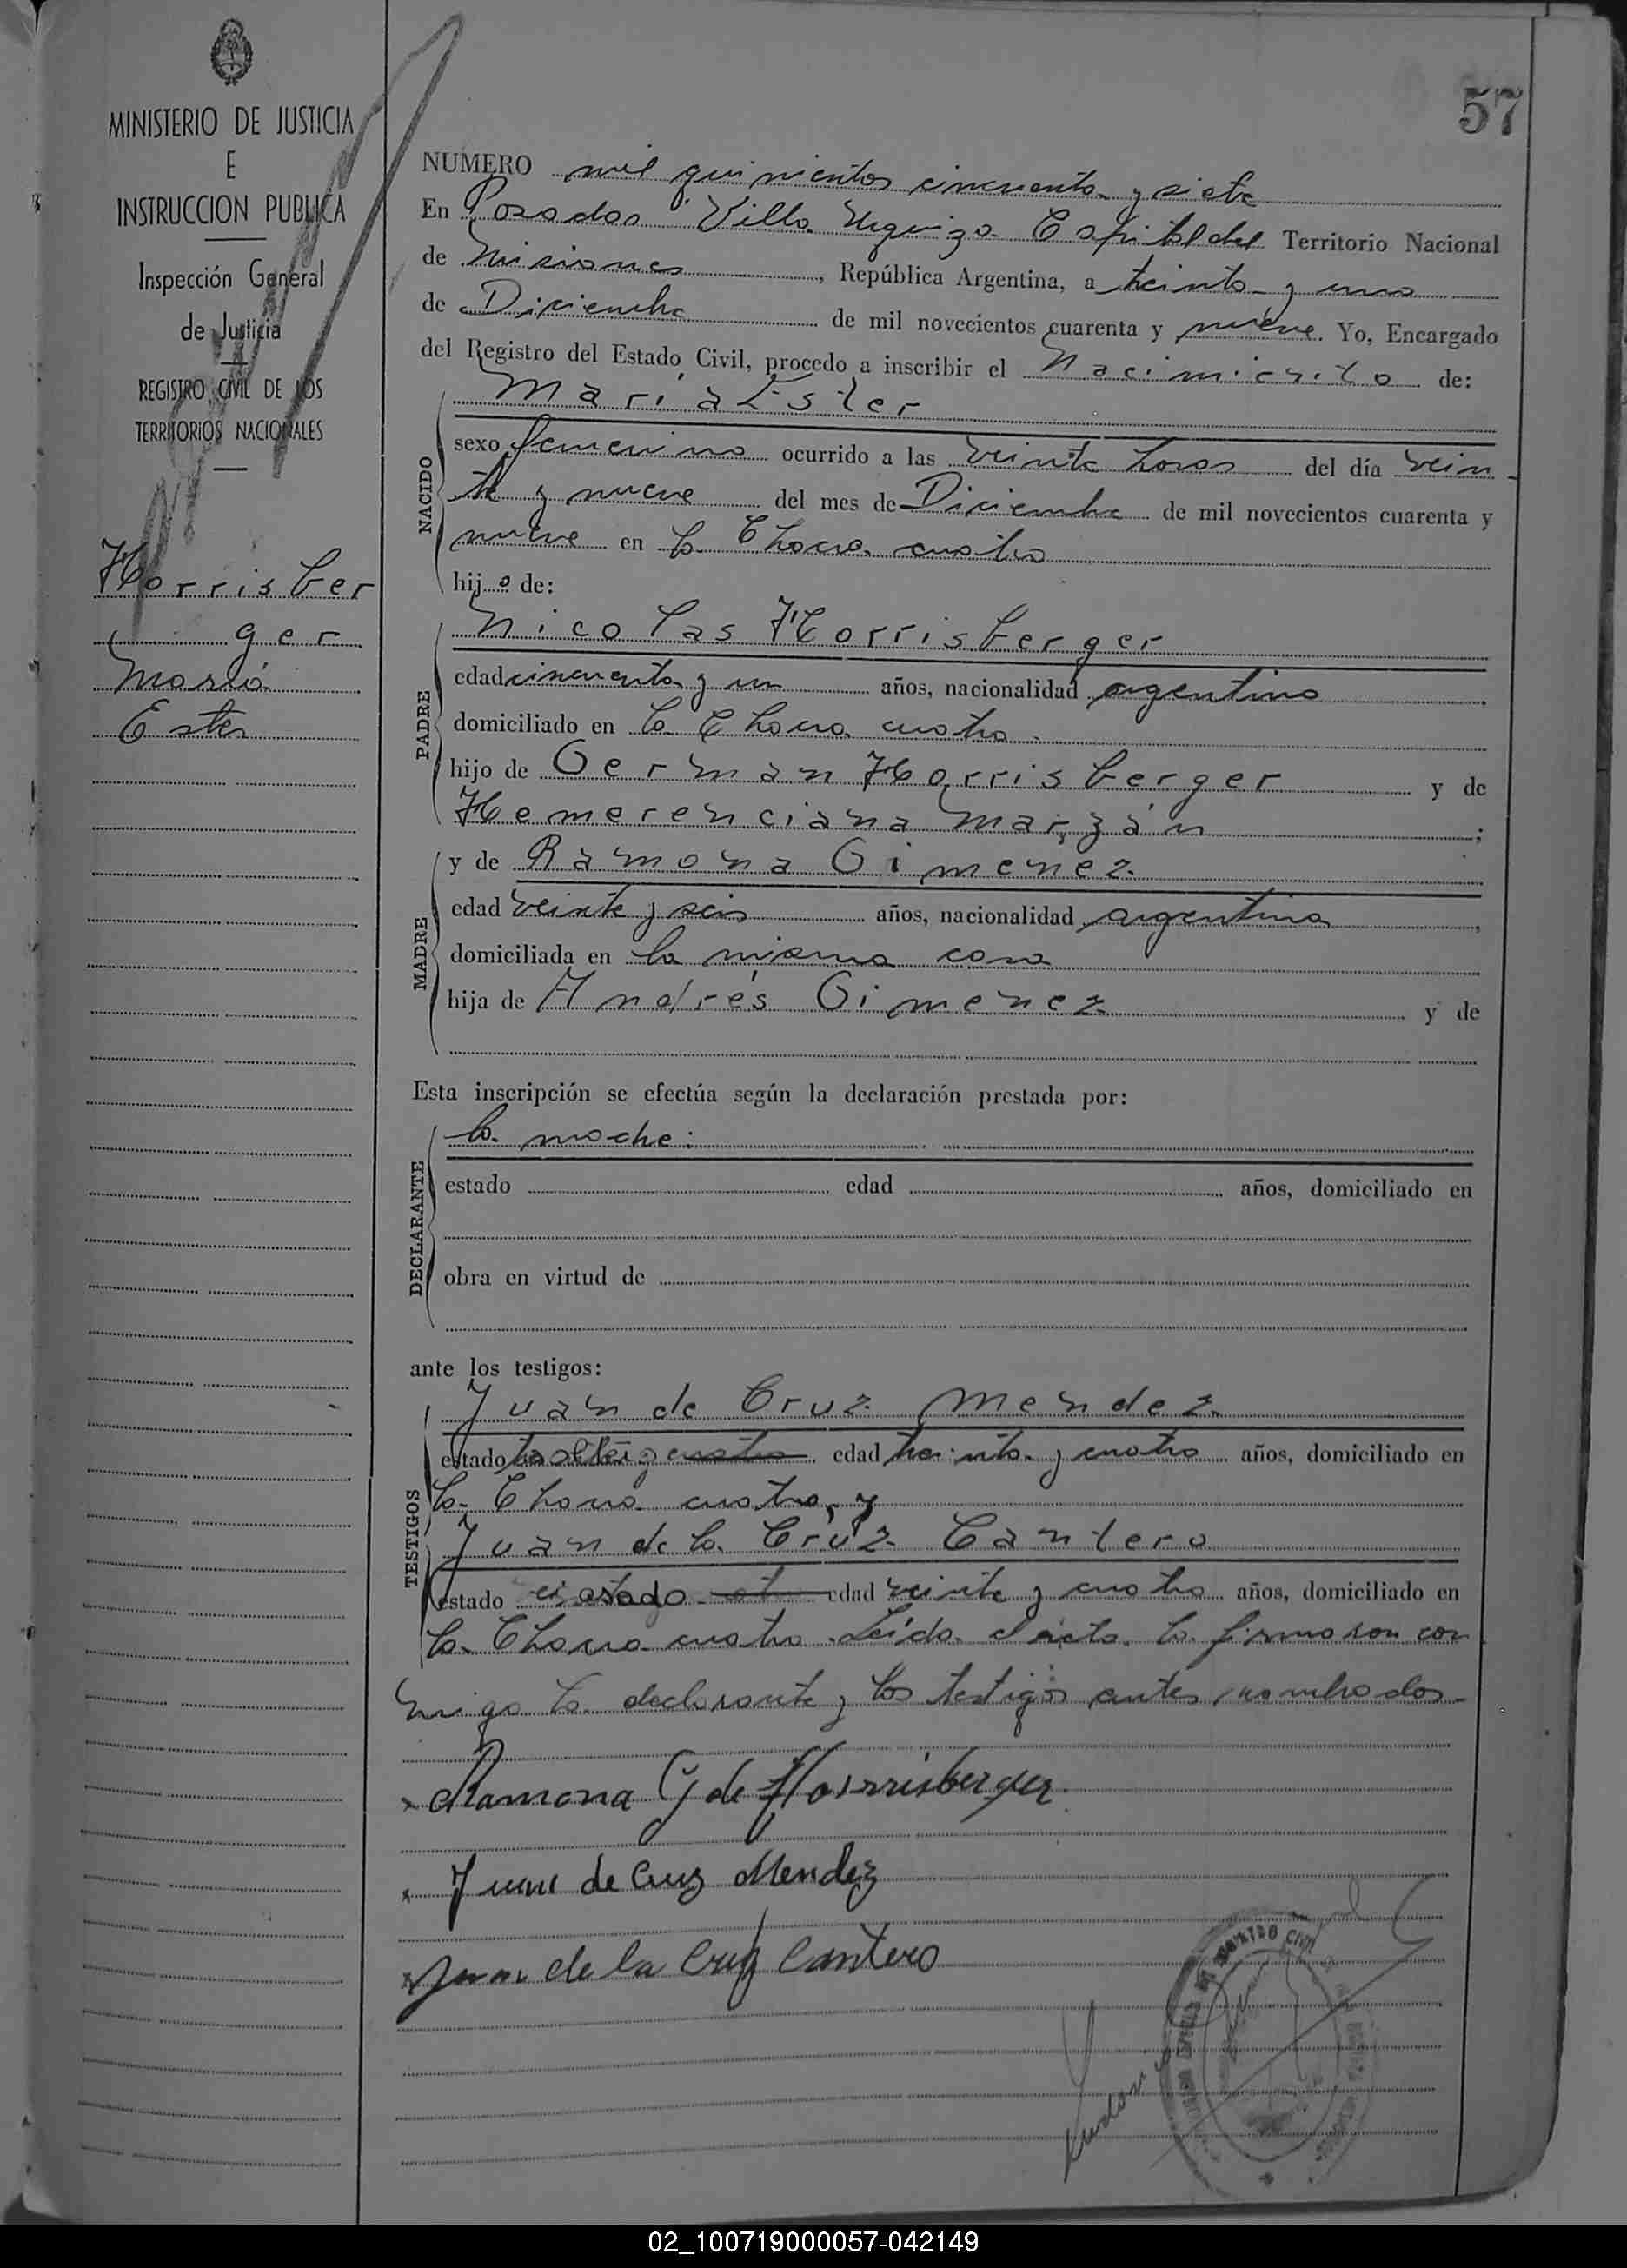 57
MINISTERIO DE JUSTICIA
E
INSTRUCCION PUBLICA
Inspección General
de Justicia
REGISTRO CIVIL DE LOS
TERRITORIOS NACIONALES
Horrisber
ger
María
Ester
NUMERO mil quinientos cincuenta y siete
En Posadas Villa Urquiza Capital del Territorio Nacional
de Misiones, República Argentina, a treinta y uno
de Diciembre de mil novecientos cuarenta y nueve. Yo, Encargado
del Registro del Estado Civil, procedo a inscribir el Nacimiento de:
NACIDO
María Ester
sexo femenino ocurrido a las veinte horas del día vein
te y nueve del mes de Diciembre de mil novecientos cuarenta y
nueve en la Chacra cuatro
hija de:
PADRE
Nicolas Horrisberger
edad cincuenta y un años, nacionalidad argentino
domiciliado en la Chacra cuatro.
hijo de German Horrisberger y de
Hemerenciana Marzán;
MADRE
y de Ramona Gimenez
edad veinte y seis años, nacionalidad argentina
domiciliada en la misma casa
hija de Andrés Gimenez y de
Esta inscripción se efectúa según la declaración prestada por:
DECLARANTE
la madre:
estado edad años, domiciliado en
obra en virtud de
ante los testigos:
TESTIGOS
Juan de Cruz Mendez
estado edad treinta y cuatro años, domiciliado en
la Chacra cuatro, y
Juan de la Cruz Cantero
estado casado edad veinte y cuatro años, domiciliado en
la Chacra cuatro. Leída el acta la firmaron con
migo la declarante y los testigos antes nombrados-
Ramona G de Horrisberger
Juan de Cruz Mendez
Juan de la Cruz Cantero
02_100719000057-042149